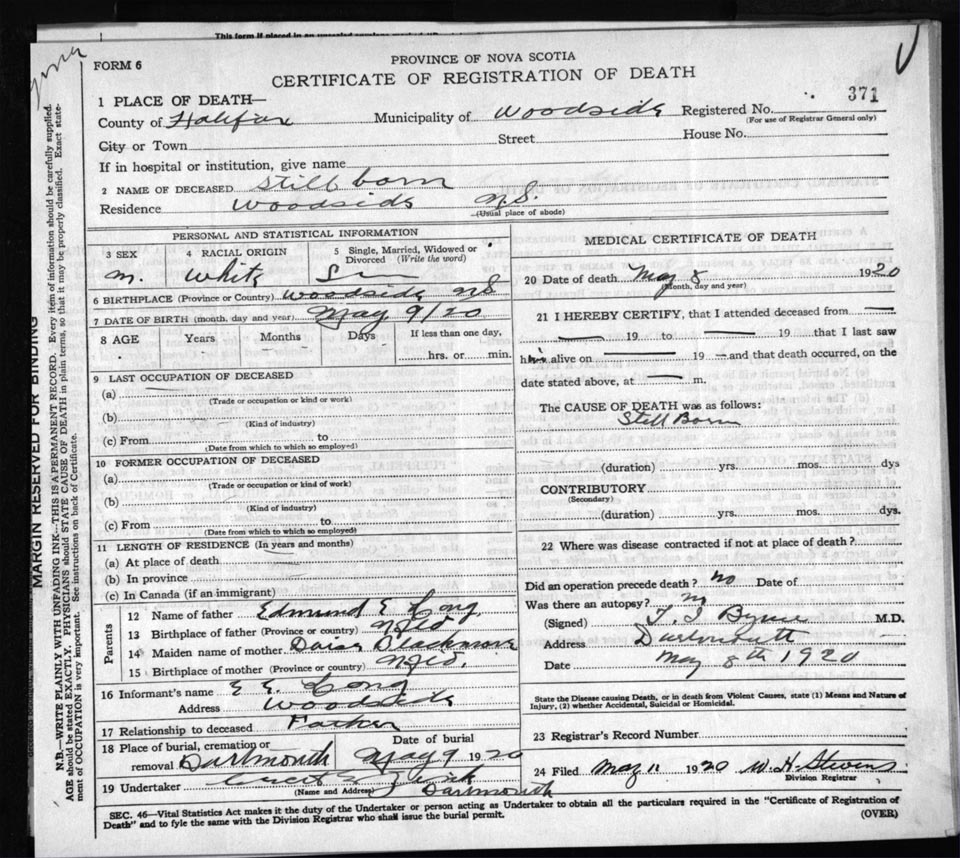 This form if placed in an unsealed envelope marked
FORM 6
PROVINCE OF NOVA SCOTIA
CERTIFICATE OF REGISTRATION OF DEATH
371
1 PLACE OF DEATH—
County of Halifax Municipality of Woodside Registered No.
(For use of Registrar General only)
City or Town Street House No.
If in hospital or institution, give name
2 NAME OF DECEASED Still born
Residence Woodside N.S.
(Usual place of abode)
PERSONAL AND STATISTICAL INFORMATION
3 SEX 4 RACIAL ORIGIN 5 Single, Married, Widowed or Divorced (Write the word)
M. White S
6 BIRTHPLACE (Province or Country) Woodside N.S.
7 DATE OF BIRTH (month, day and year) May 9/20
8 AGE Years Months Days If less than one day,
hrs. or min.
9 LAST OCCUPATION OF DECEASED
(a)
(Trade or occupation or kind or work)
(b)
(Kind of industry)
(c) From to
(Date from which to which so employed)
10 FORMER OCCUPATION OF DECEASED
(a)
(Trade or occupation or kind of work)
(b)
(Kind of industry)
(c) From to
(Date from which to which so employed)
11 LENGTH OF RESIDENCE (In years and months)
(a) At place of death
(b) In province
(c) In Canada (if an immigrant)
Parents
12 Name of father Edmund E Long
13 Birthplace of father (Province or country) Nfld
14 Maiden name of mother Blackmore
15 Birthplace of mother (Province or country) Nfld.
16 Informant's name E E. Long
Address Woodside
17 Relationship to deceased Father
18 Place of burial, cremation or removal Dartmouth Date of burial May 9 1920
19 Undertaker
(Name and Address) Dartmouth
MEDICAL CERTIFICATE OF DEATH
20 Date of death May 8 1920
(Month, day and year)
21 I HEREBY CERTIFY, that I attended deceased from
19 to 19 that I last saw
him alive on 19 and that death occurred, on the
date stated above, at m.
The CAUSE OF DEATH was as follows:
Still Born
(duration) yrs. mos. dys
CONTRIBUTORY
(Secondary)
(duration) yrs. mos. dys.
22 Where was disease contracted if not at place of death?
Did an operation precede death? no Date of
Was there an autopsy? no
(Signed) M.D.
Address Dartmouth
Date May 8th 1920
State the Disease causing Death, or in death from Violent Causes, state (1) Means and Nature of
Injury, (2) whether Accidental, Suicidal or Homicidal.
23 Registrar's Record Number
24 Filed May 11 1920 W. H. Stevens
Division Registrar
SEC. 46—Vital Statistics Act makes it the duty of the Undertaker or person acting as Undertaker to obtain all the particulars required in the "Certificate of Registration of
Death" and to fyle the same with the Division Registrar who shall issue the burial permit.
(OVER)
MARGIN RESERVED FOR BINDING
N.B.—WRITE PLAINLY WITH UNFADING INK—THIS IS A PERMANENT RECORD. Every item of information should be carefully supplied.
AGE should be stated EXACTLY. PHYSICIANS should STATE CAUSE OF DEATH in plain terms, so that it may be properly classified. Exact state-
ment of OCCUPATION is very important. See instructions on back of Certificate.